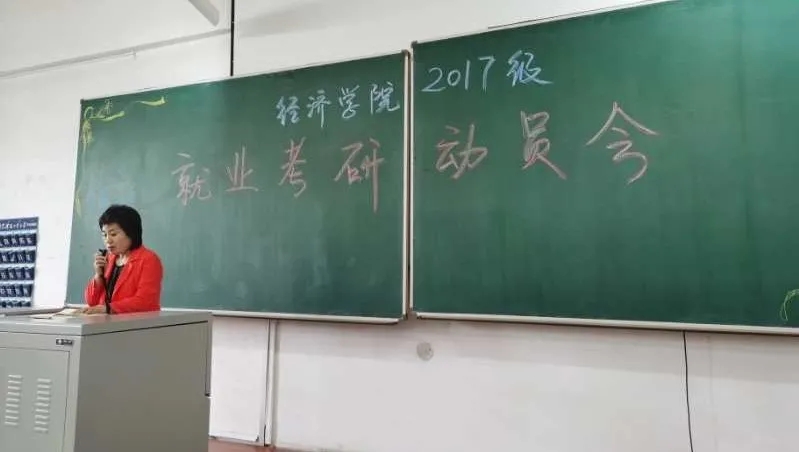 经济学院 2017级
就业考研 动员会